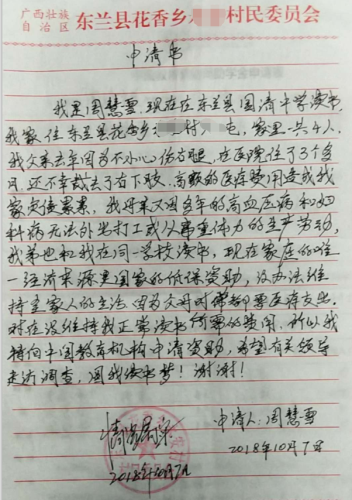 广西壮族
自治区
东兰县花香乡 村民委员会
申请书
我是周慧雪,现在在东兰县国清中学读书,
我家住东兰县花香乡 村 屯,家里一共4人,
我父亲去年因为不小心伤了腿,在医院住了3个多
月,还不幸截去了右下肢,高额的医疗费用造成我
家负债累累,我母亲又因多年的高血压病和妇
科病无法外出打工或从事重体力的生产劳动,
我弟也和我在同一学校读书,现在家庭的唯
一经济来源是国家的低保资助,没办法维
持全家人的生活,因为父母时常都要医疗支出,
对在没维持我正常读书所需的费用,所以我
特向中国教育机构申请资助,希望有关领导
走访调查,圆我读书梦!谢谢!
情况属实 申请人:周慧雪
2018年10月7日
2018年10月7日